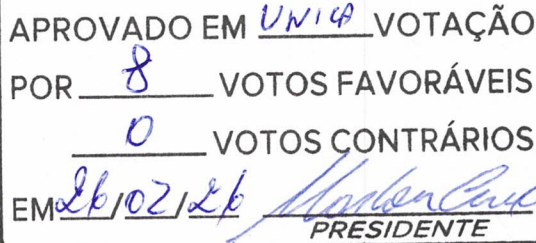 APROVADO EM UNICA VOTAÇÃO
POR 8 VOTOS FAVORÁVEIS
0 VOTOS CONTRÁRIOS
EM 26/02/26
PRESIDENTE